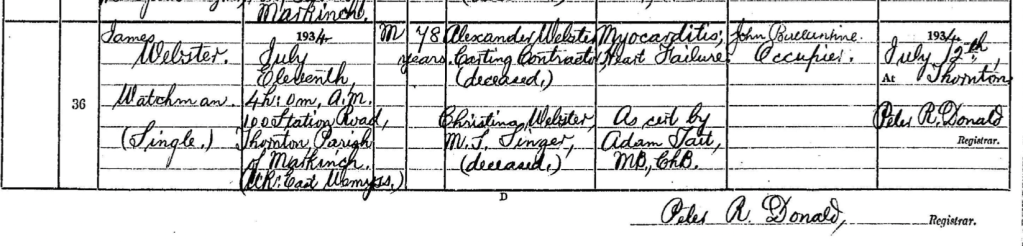 Markinch.
36
James
Webster.
Watchman.
(Single.)
1934
July
Eleventh
4h: 0m, A.M.
100 Station Road,
Thornton Parish
of Markinch.
(U.R: East Wemyss.)
M
78
years.
Alexander Webster
Carting Contractor
(deceased,)
Christina Webster,
M.S. Singer,
(deceased.)
Myocarditis;
Heart Failure.
As cert by
Adam Tait,
MB, ChB.
John
Occupier.
1934
July 12th.
At Thornton
Peter R. Donald
Registrar.
D
Peter R. Donald, Registrar.